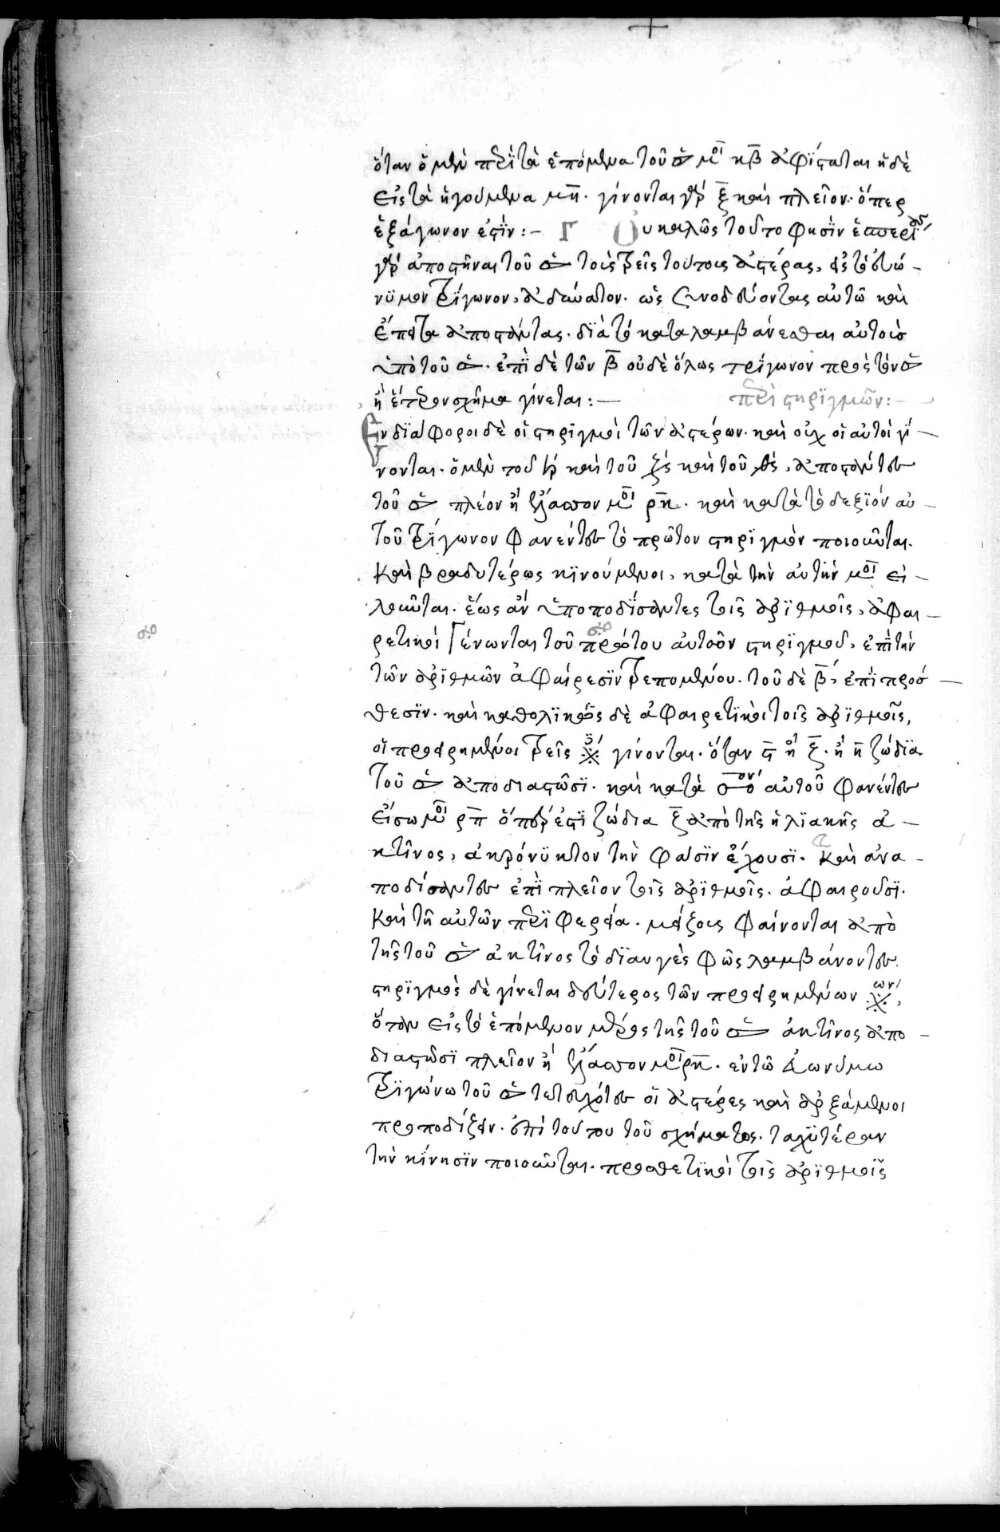 ὅταν ὁ μὲν περὶ τὰ ἑπόμενα τοῦ ☉ μοι κβ ἀφίσταται ἡ δὲ
εἰς τὰ ἡγούμενα μη. γίνονται γὰρ ξ καὶ πλεῖον. ὅπερ
ἑξάγωνον ἐστὶν :– Γ Οὐ καλῶς τοῦτο φησὶν ἑσπερί
γὰρ ἀποστῆναι τοῦ ☉ τοὺς τρεῖς τούτους ἀστέρας,
νυμον τρίγωνον, ἀδύνατον. ὡς συνοδεύοντας αὐτῶ καὶ
ἔπειτα ἀποστάντας. διὰ τὸ καταλαμβάνεσθαι αὐτοὺς
ὑπὸ τοῦ ☉. ἐπὶ δὲ τῶν β οὐδὲ ὅλως τρίγωνον πρὸς τὸν ☉
ἢ ἕτερον σχῆμα γίνεται :– περὶ στηριγμῶν :–
διάφοροι δὲ οἱ στηριγμοὶ τῶν ἀστέρων. καὶ οὐχ οἱ αὐτοὶ γί–
νονται. ὁ μὲν τοῦ ♄ καὶ τοῦ ♃ καὶ τοῦ ♂, ἀποστάντων
τοῦ ☉ πλέον ἢ ἔλασσον μοι ρκ. καὶ κατὰ τὸ δεξιόν αὐ–
τοῦ τρίγωνον φανέντων τὸ πρῶτον στηριγμὸν ποιοῦνται.
καὶ βραδυτέρως κινούμενοι, κατὰ τὴν αὐτὴν μοι εἰ–
λοῦνται. ἕως ἂν ὑποποδίσαντες τοῖς ἀριθμοῖς, ἀφαι–
ρετικοὶ γένωνται τοῦ πρώτου αὐτῶν στηριγμοῦ, ἐπὶ τὴν
τῶν ἀριθμῶν ἀφαίρεσιν τρεπομένου. τοῦ δὲ β, ἐπὶ πρόσ–
θεσιν. καὶ καθολικῶς δὲ ἀφαιρετικοὶ τοῖς ἀριθμοῖς,
οἱ προειρημένοι τρεῖς ※ γίνονται. ὅταν ϛ ἢ ζ. ἢ η ζώδια
τοῦ ☉ ἀποδιαστῶσι. καὶ κατὰ αὐτοῦ φανέντων
εἴσω μοι ρπ ὅπερ ἐστὶ ζώδια ϛ ἀπὸ τῆς ἡλιακῆς ἀ–
κτῖνος, ἀκρόνυκτον τὴν φάσιν ἔχουσι. καὶ ἀνα–
ποδίσαντων ἐπὶ πλεῖον τοῖς ἀριθμοῖς. ἀφαιροῦσι.
καὶ τῆ αὐτῶν περιφερεία. μείζους φαίνονται ἀπὸ
τῆς τοῦ ☉ ἀκτῖνος τὸ διαυγὲς φῶς λαμβάνοντων.
στηριγμὸς δὲ γίνεται δεύτερος τῶν προειρημένων ※ων,
ὅταν εἰς τὸ ἑπόμενον μέρος τῆς τοῦ ☉ ἀκτῖνος ἀπο–
διαστῶσι πλεῖον ἢ ἔλασσον μοι ρκ. ἐν τῶ εὐωνύμω
τριγώνω τοῦ ☉ τετυχότων οἱ ἀστέρες καὶ ἀρξάμενοι
προποδίζειν. ἀπὸ τούτου τοῦ σχήματος. ταχυτέραν
τὴν κίνησιν ποιοῦνται. προσθετικοὶ τοῖς ἀριθμοῖς